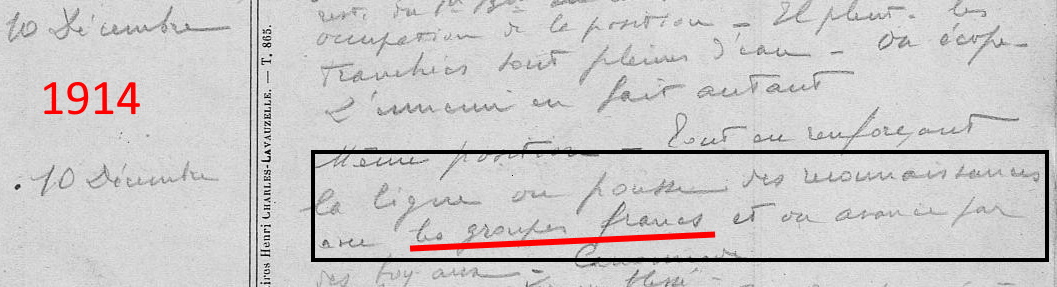 10 Décembre
1914
10 Décembre
ÉDITEURS HENRI CHARLES-LAVAUZELLE. — T. 865.
occupation de la position — Il pleut. les
tranchées sont pleines d'eau — On écope —
L'ennemi en fait autant
Même position — Tout en renforçant
la ligne on pousse des reconnaissances
avec les groupes francs et on avance par
des boyaux —